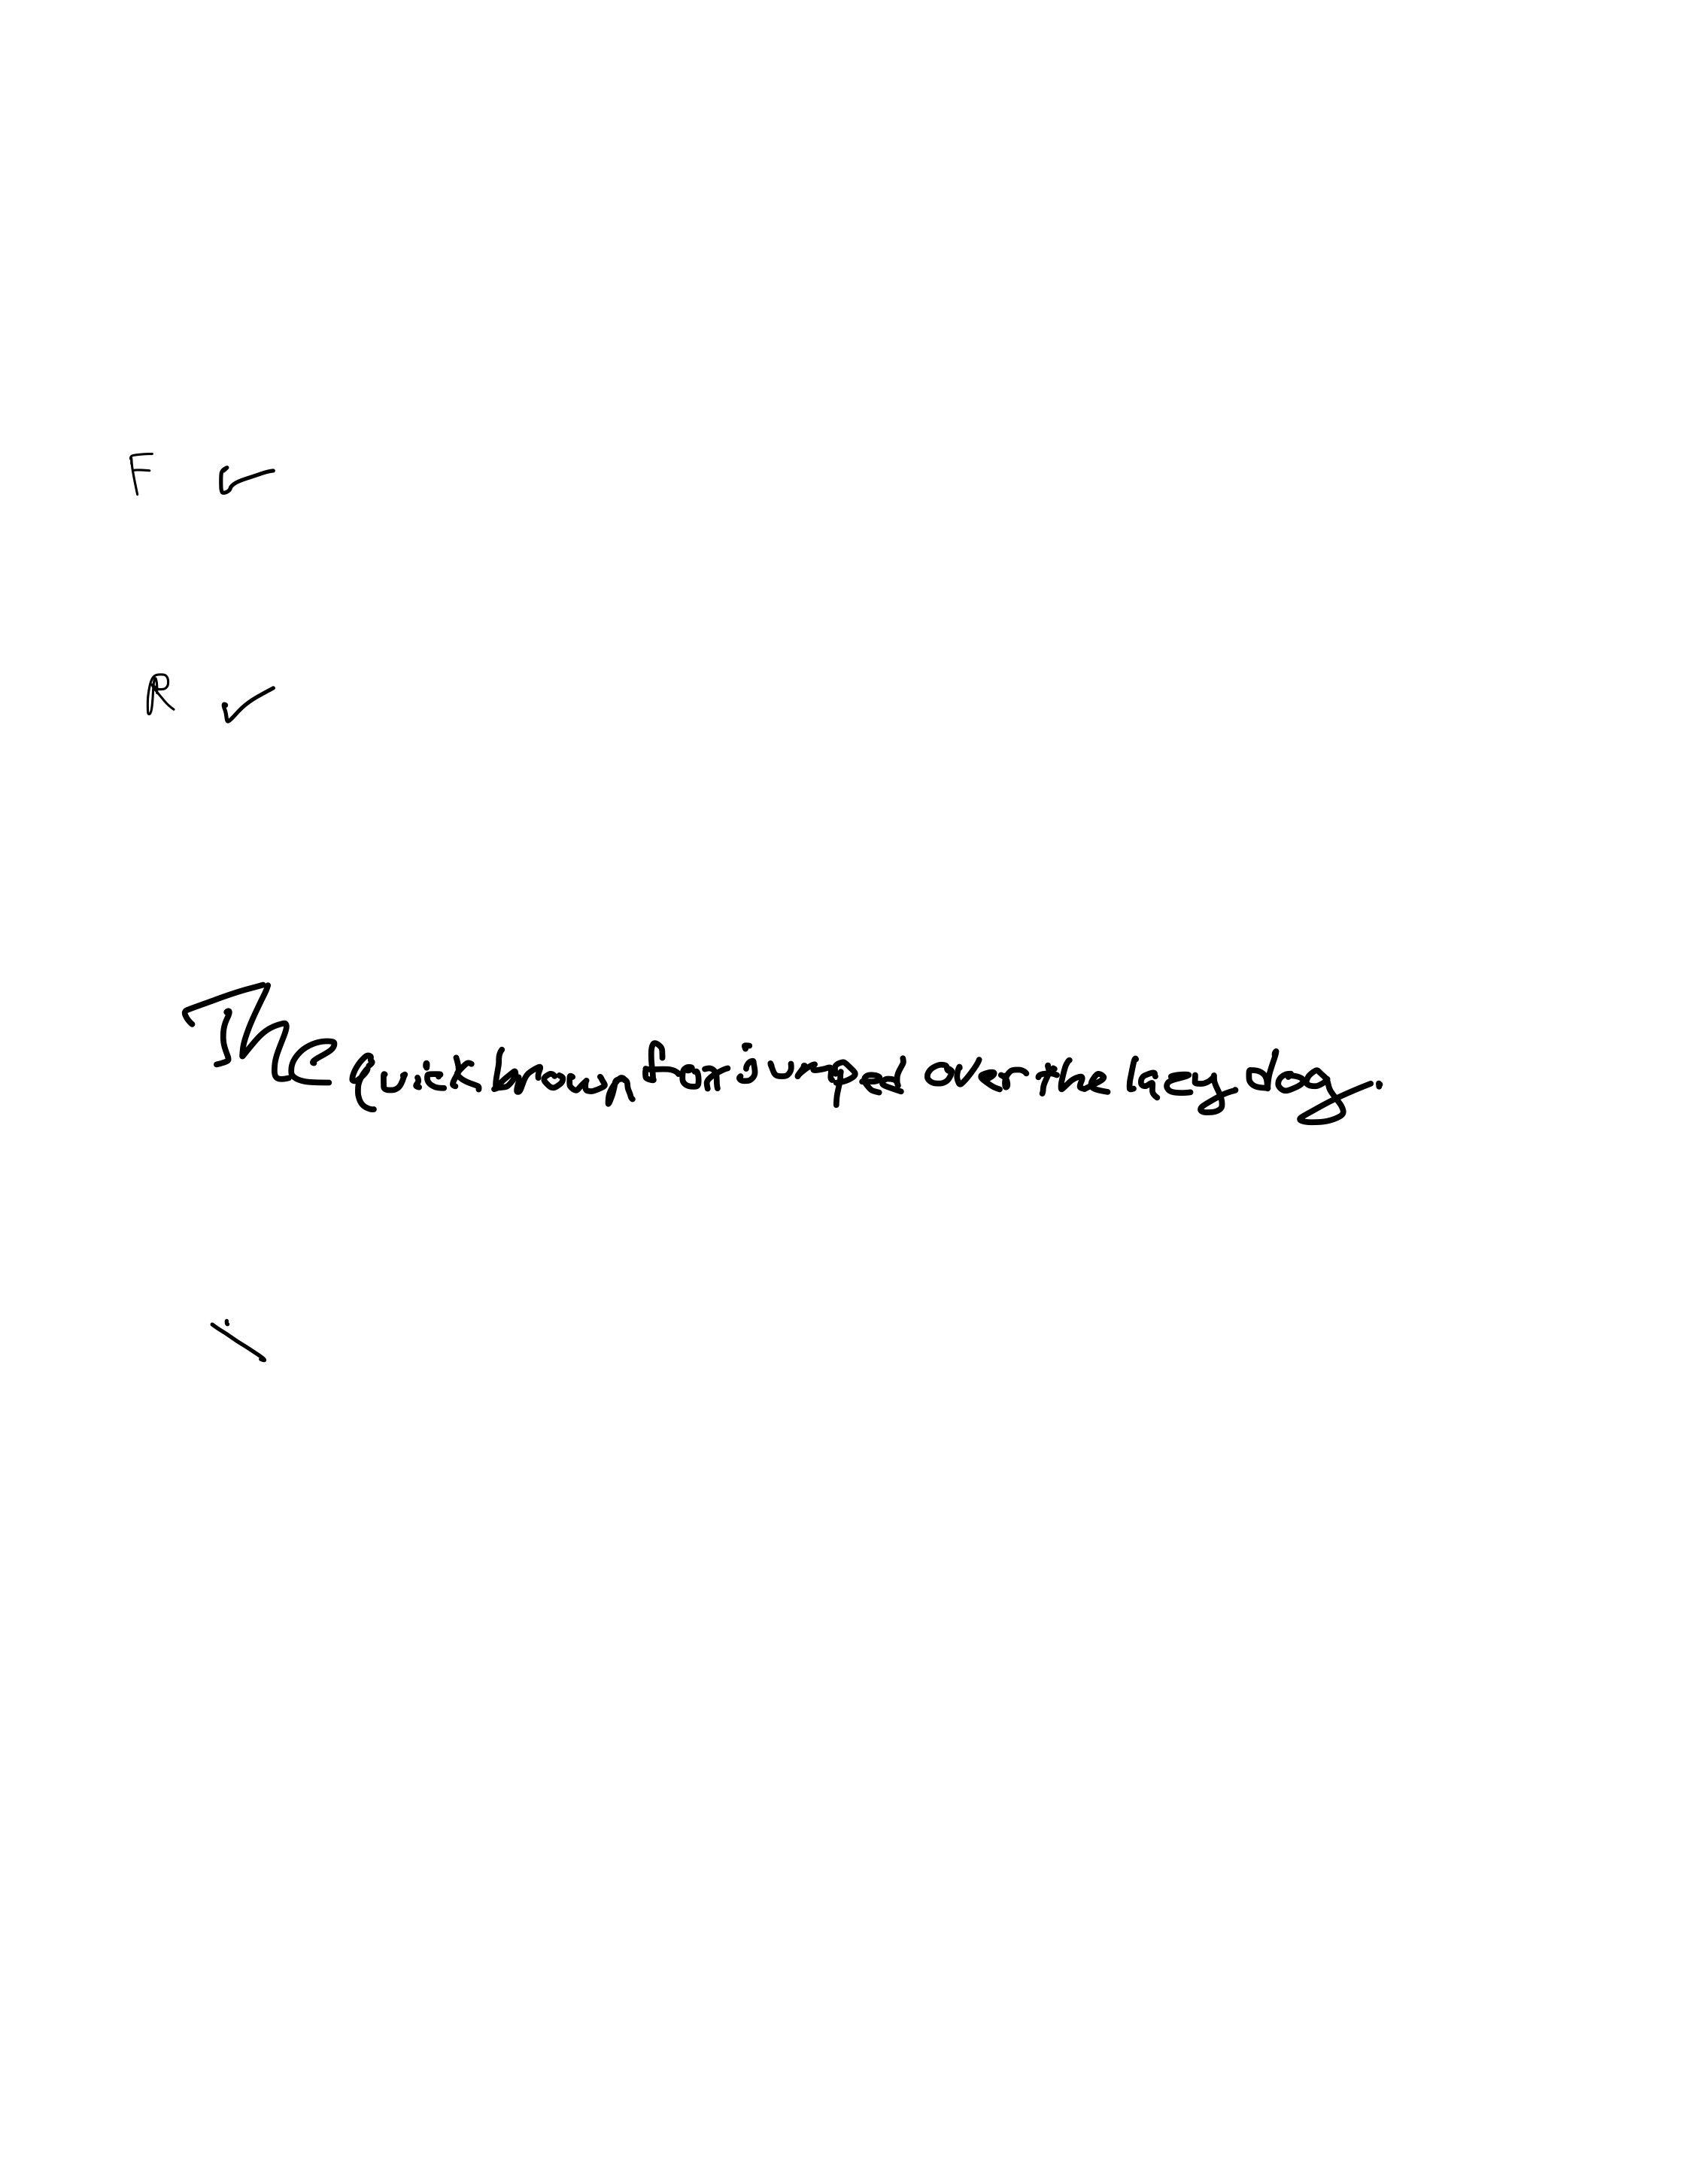 F ✓
R ✓
The quick brown fox jumped over the lazy dog.